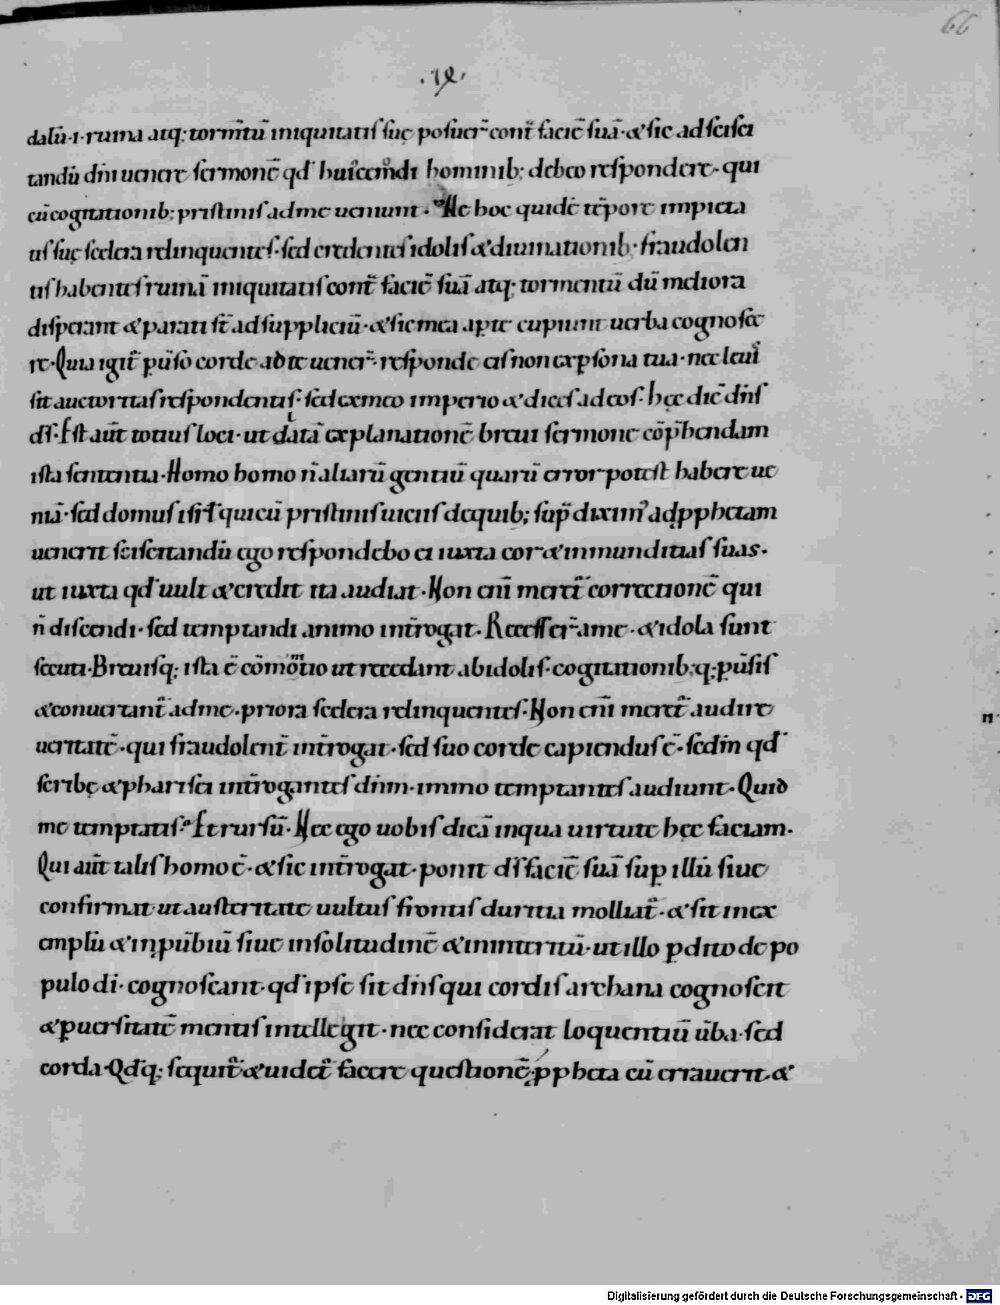 66
.ıx.
dalū·i·ruina atq; torm̄tū iniquitatis suę posuer̄ cont̄ faciē suā·& sic ad scisci
tandū dn̄i uenire sermonē qd̓ hui᷒cemodi hominib; debeo respondere· qui
cū cogitationib; pristinis ad me ueniunt· Ac hoc quidē tēpore impieta
tis suę scelera relinquentes· sed credentes idolis & diuinationib· fraudolen
tis habentes ruinā iniquitatis cont̄ faciē suā atq; tormentū dū meliora
disperant & parati st̄ ad suppliciū· & sic mea a parte cupiunt uerba cognosce
re· Quia igit̄ puerso corde ad te uener̄· responde eis non ex psona tua· nec leuis
sit auctoritas respondentis· sed ex meo imperio & dices ad eos· hęc dic̄ dn̄s
ds̄· Est aūt totius loci· ut datā explanationē breui sermone cōp̄hendam
ista sententia· Homo homo n̄ aliarū gentiū quarū error potest habere ue
niā· sed domus isrl̄ qui cū pristinis uiciis de quib; sup̄ dixim᷒ ad pphetam
uenerit sciscitandū ego respondebo ei iuxta cor & inmunditias suas·
ut iuxta qd̓ uult & credit ita audiat· Non eni̅ meret᷑ correctionē qui
n̄ discendi· sed temptandi animo int̄rogat· Recesser̄ a me· & idola sunt
secuti· Breuisq; ista ē cōmotio ut recedant ab idolis· cogitationib; q; pūsis
& conuertant᷑ ad me· priora scelera relinquentes· Non eni̅ meret᷑ audire
ueritatē· qui fraudolent̄ int̄rogat· sed suo corde capiendus ē· sed in̄ qd̓
scribę & pharisei int̄rogantes dn̄m· immo temptantes audiunt· Quid
me temptatis? Et rursū· Nec ego uobis dicā in qua uirtute hęc faciam·
Qui aūt talis homo ē· & sic int̄rogat· ponit ds̄ faciē suā sup illū siue
confirmat· ut austeritate uultus frontis duritia molliat᷑· & sit in ex
emplū & in puerbiū siue in solitudinē & in interitū· ut illo pdito de po
pulo di· cognoscant· qd̓ ipse sit dn̄s qui cordis archana cognoscit
& puersitatē mentis intellegit· nec considerat loquentiū ūba· sed
corda· Qd̓q; sequit᷑ & uidet᷑ facere questionē; ppheta cū errauerit· &
n·
Digitalisierung gefördert durch die Deutsche Forschungsgemeinschaft - DFG